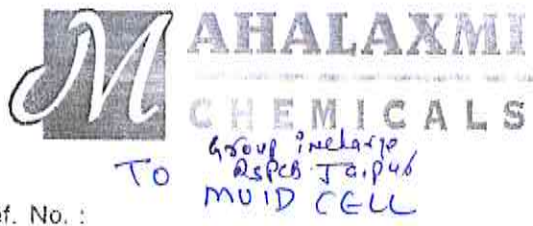 MAHALAXMI
CHEMICALS
Group incharge
TO RSPCB Jaipur
MUID CELL
ef. No. :